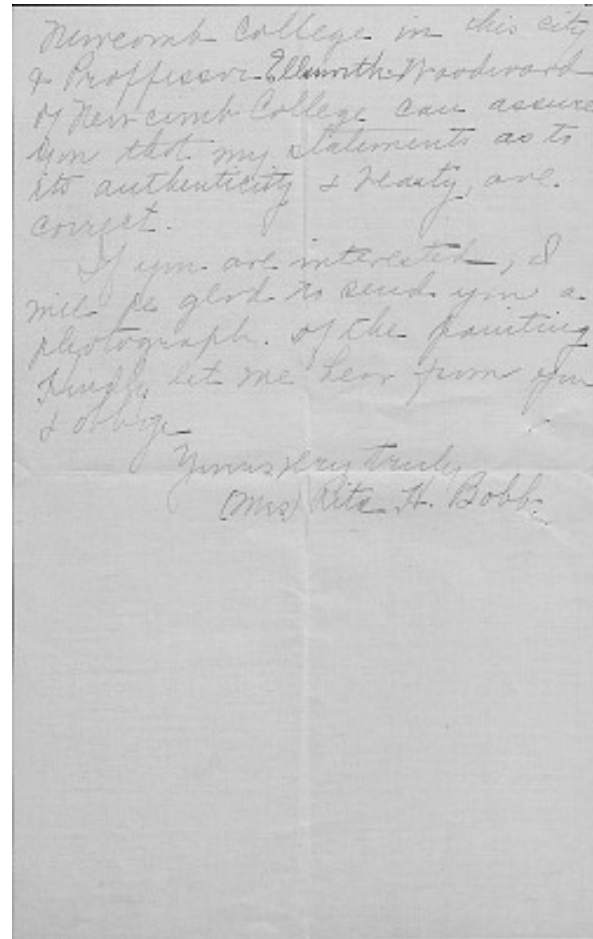 Newcomb College in this city
& Proffessor Ellsworth Woodward
of Newcomb College can assure
you that my statements as to
its authenticity & beauty, are
correct.
If you are interested, I
will be glad to send you a
photograph. of the painting
Kindly let me hear from you
& oblige
Yours very truly
(Mrs) Rita H. Bobb.